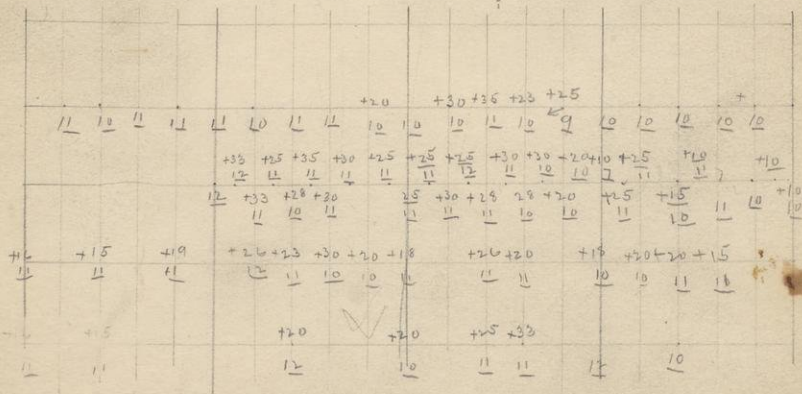 +20 +30 +36 +23 +25
11 10 11 11 11 10 11 11 10 10 10 11 10 9 10 10 10 10 10
+33 +25 +35 +30 +25 +25 +25 +30 +30 +20 +10 +25 +10 +10
12 11 11 11 11 11 12 11 10 10 7 11 11
+33 +28 +30 25 +30 +28 28 +20 +25 +15 +10
12 11 10 11 11 11 11 10 10 11 10 11 10 10
+16 +15 +19 +26 +23 +30 +20 +18 +26 +20 +18 +20 +20 +15
11 11 11 12 11 10 10 11 11 11 10 10 11 11
+15 +20 +20 +25 +33
11 11 12 10 11 11 12 10